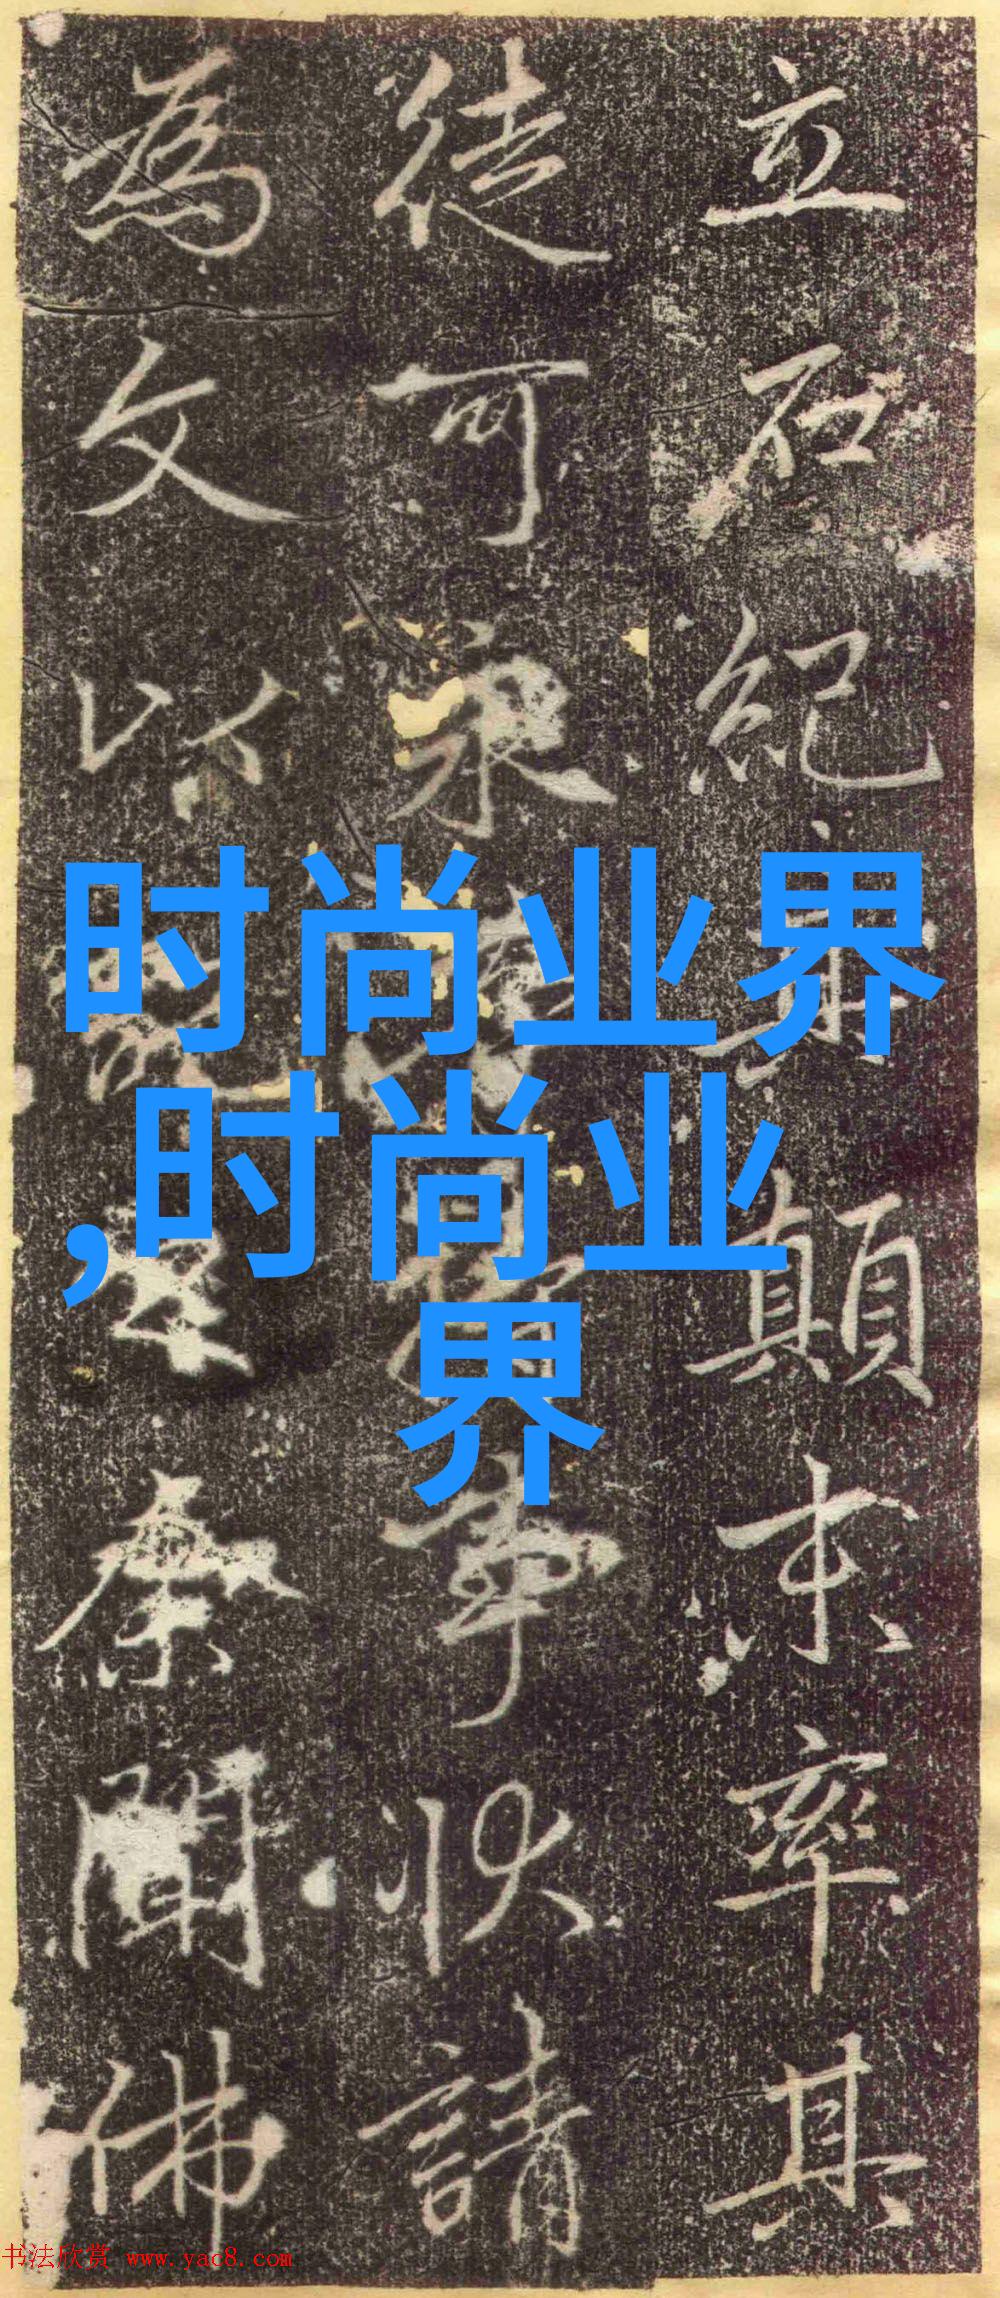 立石紀顛末率其
徒可事狀請
為文以聞佛
时尚业界
,时尚业
界
书法欣赏 www.yac8.com